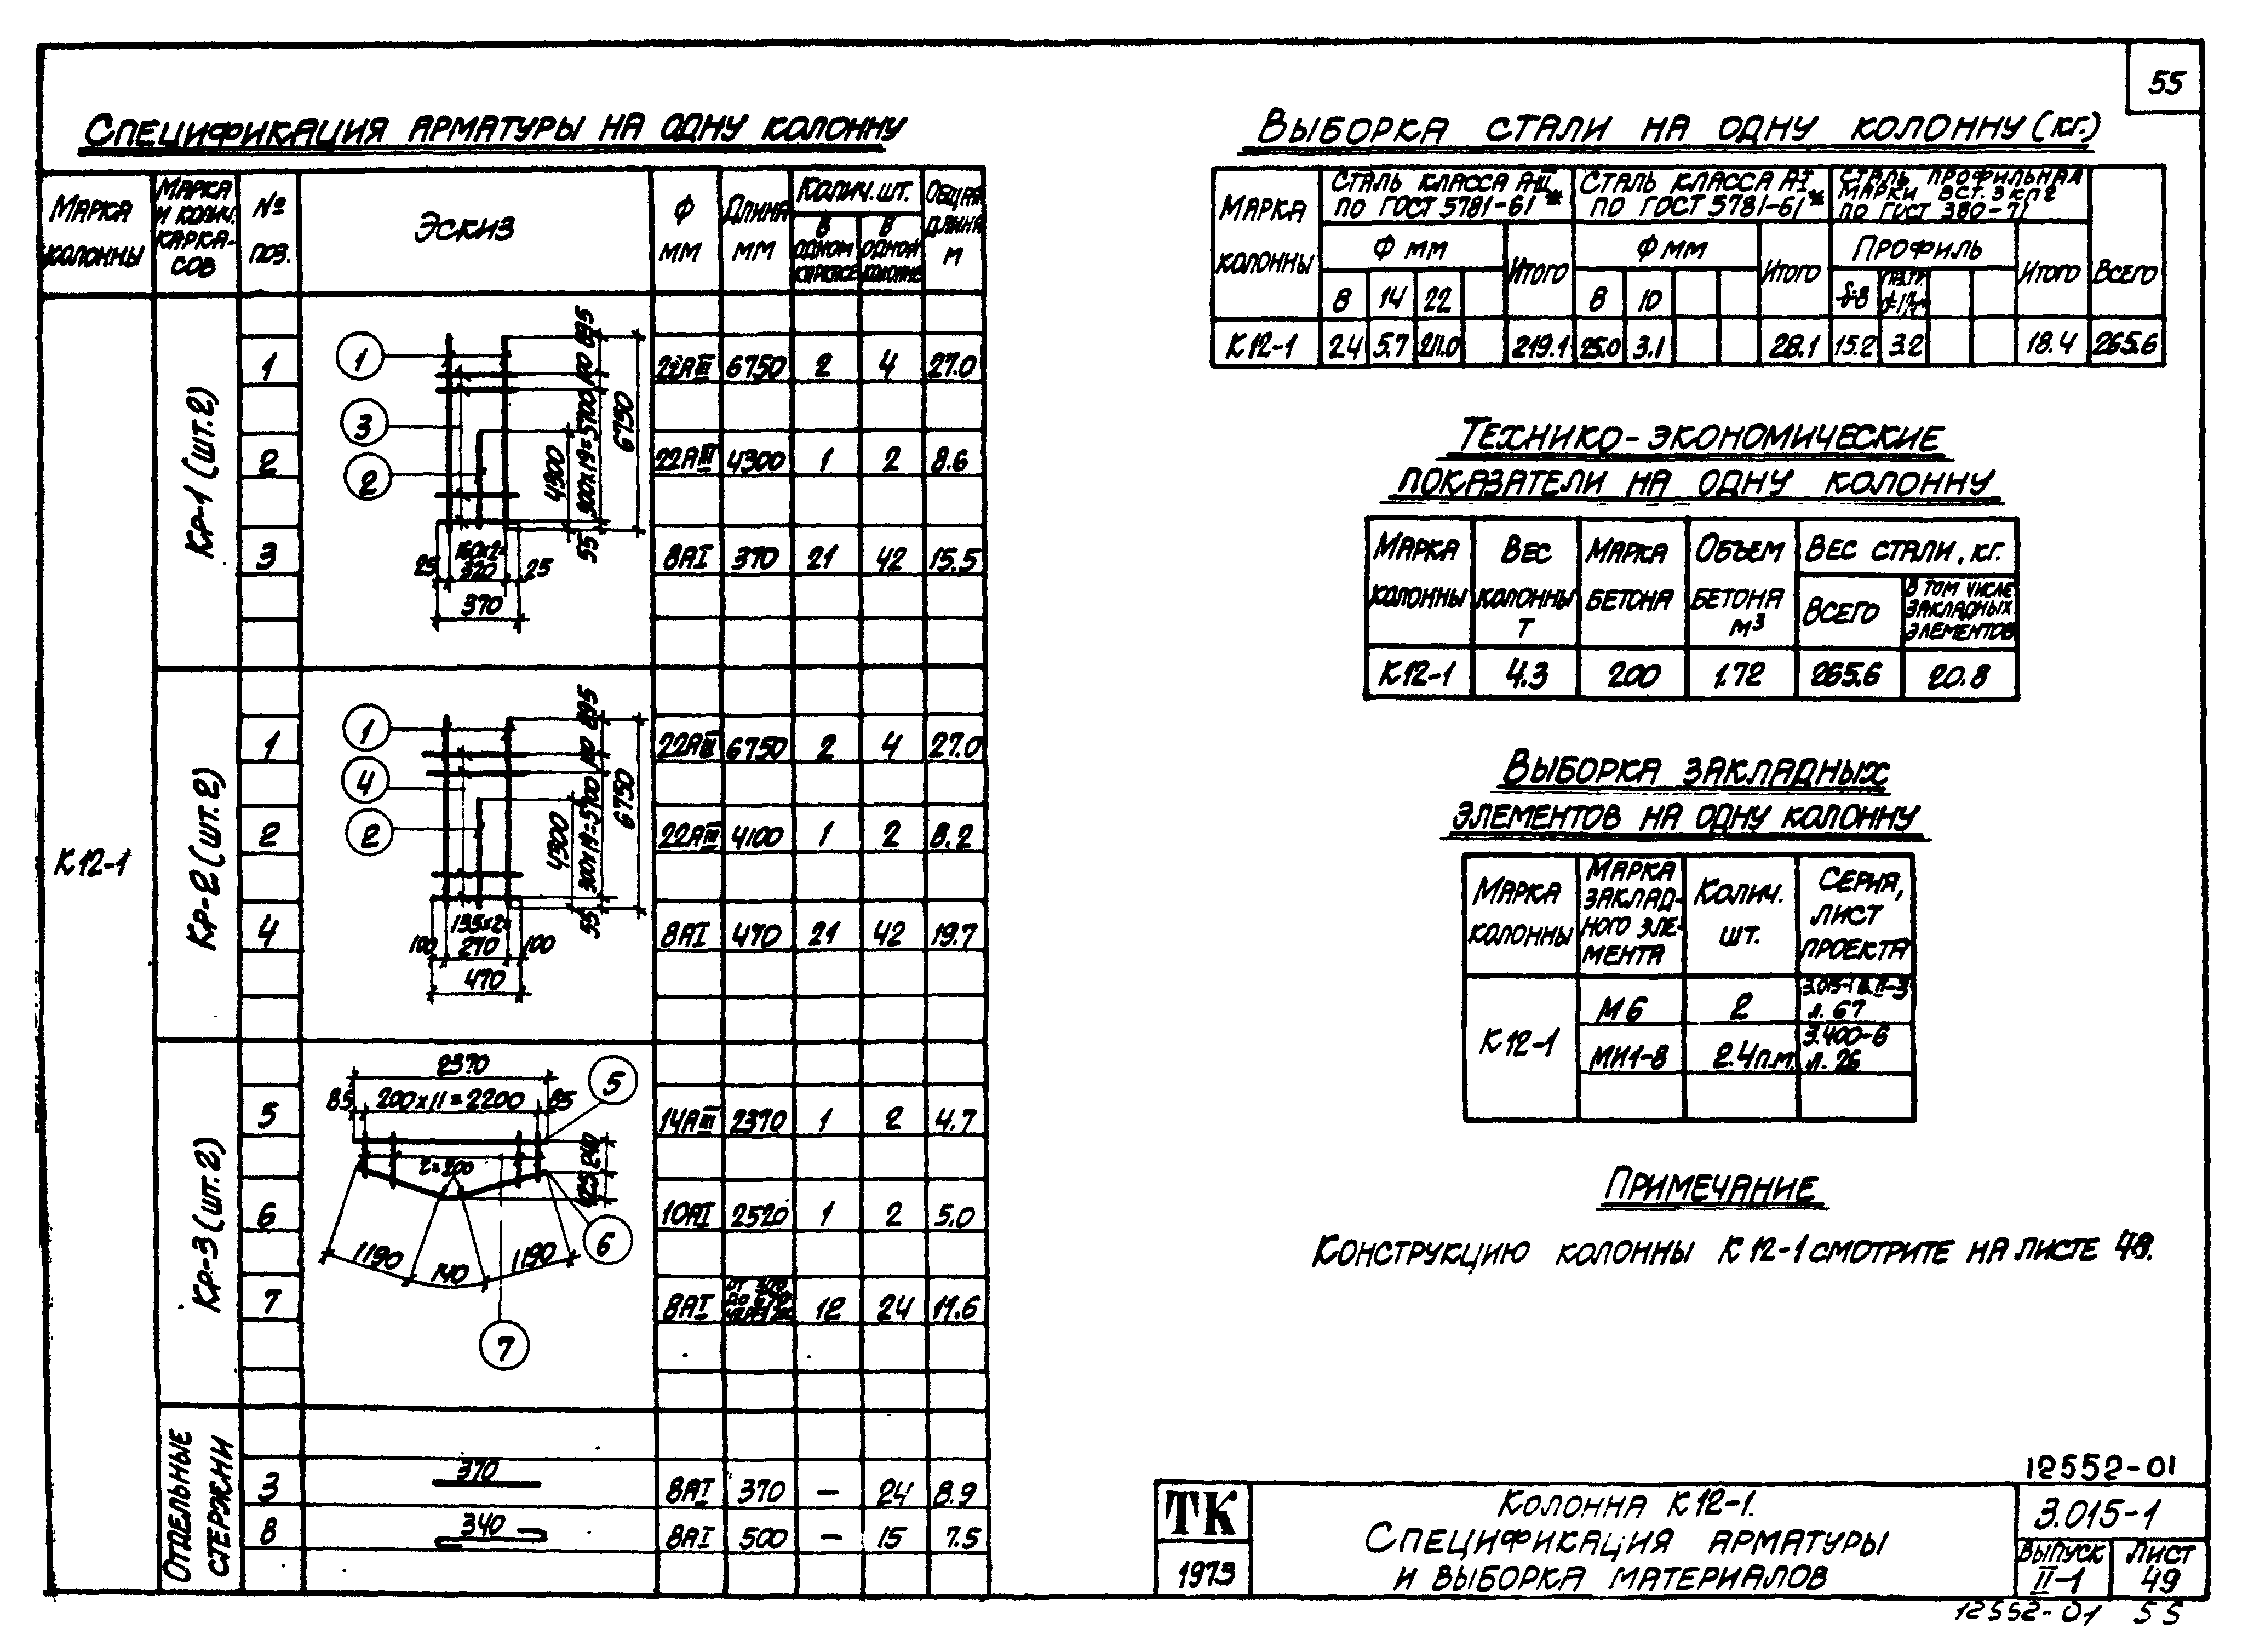 55
Спецификация арматуры на одну колонну
Марка колонны
Марка и колич. каркасов
№ поз.
Эскиз
Ф мм
Длина мм
Колич. шт.
в одном каркасе
в одной колонне
Общая длина м
К12-1
Кр-1 (шт.2)
1 22АIII 6750 2 4 27.0
2 22АIII 4300 1 2 8.6
3 8АI 370 21 42 15.5
1
3
2
895
100
300х19=5700
6750
4300
55
25 160х2= 320 25
370
Кр-2 (шт.2)
1 22АIII 6750 2 4 27.0
2 22АIII 4100 1 2 8.2
4 8АI 470 21 42 19.7
1
4
2
895
100
300х19=5700
6750
4300
55
100 135х2= 270 100
470
Кр-3 (шт.2)
5 14АIII 2370 1 2 4.7
6 10АI 2520 1 2 5.0
7 8АI 12 24 11.6
2370
85 200х11=2200 85
5
240
125
r=200
1190 140 1190
6
7
Отдельные стержни
3 370 8АI 370 — 24 8.9
8 340 8АI 500 — 15 7.5
Выборка стали на одну колонну (кг.)
Марка колонны
Сталь класса А-III по ГОСТ 5781-61*
Сталь класса А-I по ГОСТ 5781-61*
Сталь профильная марки ВСт.3кп2 по ГОСТ 380-71
Ф мм
Итого
Ф мм
Итого
Профиль
Итого
Всего
8 14 22
8 10
δ-8
К12-1 2.4 5.7 211.0 219.1 25.0 3.1 28.1 15.2 3.2 18.4 265.6
Технико-экономические
показатели на одну колонну
Марка колонны
Вес колонны т
Марка бетона
Объем бетона м³
Вес стали, кг.
Всего
в том числе закладных элементов
К12-1 4.3 200 1.72 265.6 20.8
Выборка закладных
элементов на одну колонну
Марка колонны
Марка закладного элемента
Колич. шт.
Серия, лист проекта
К12-1
М6 2 3.015-1 в.II-3 л. 67
МН1-8 2.4п.м. 3.400-6 л. 26
Примечание
Конструкцию колонны К12-1 смотрите на листе 48.
12552-01
ТК
1973
Колонна К12-1.
Спецификация арматуры
и выборка материалов
3.015-1
Выпуск II-1
Лист 49
12552-01 55